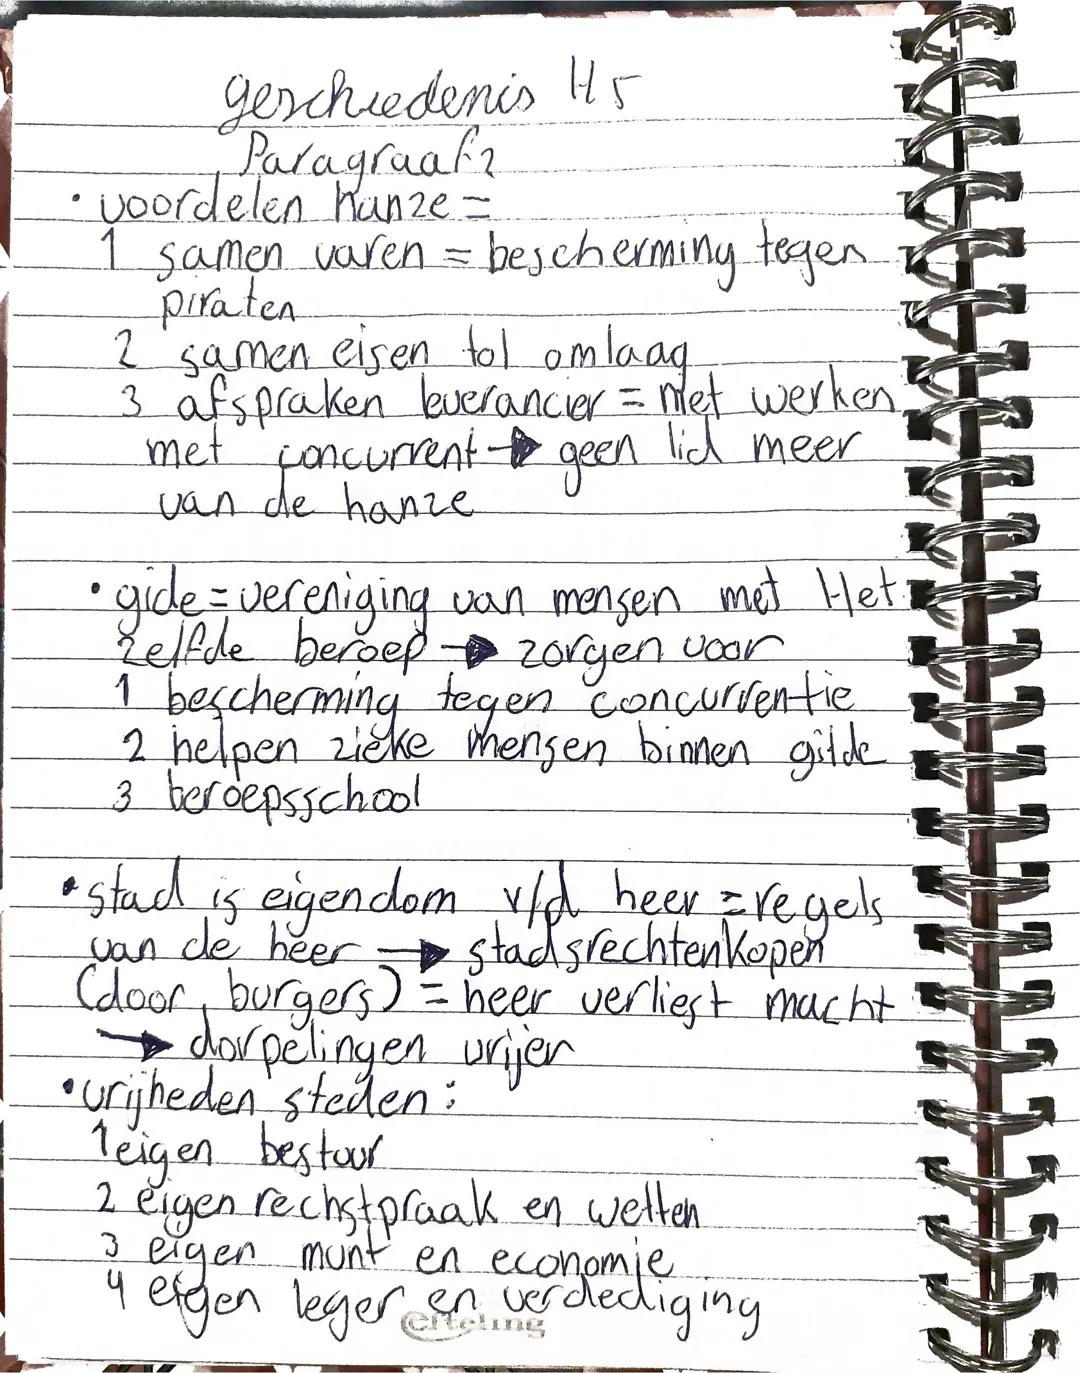 geschiedenis H5
Paragraaf 2
• voordelen hanze =
1 samen varen = bescherming tegen
piraten
2 samen eisen tol omlaag
3 afspraken leverancier = niet werken
met concurrent → geen lid meer
van de hanze
• gide = vereniging van mensen met Het
zelfde beroep → zorgen voor
1 bescherming tegen concurrentie
2 helpen zieke mensen binnen gilde
3 beroepsschool
• stad is eigendom v/d heer = regels
van de heer → stadsrechten kopen
(door burgers) = heer verliest macht
→ dorpelingen vrijer
• vrijheden steden :
1 eigen bestuur
2 eigen rechstpraak en wetten
3 eigen munt en economie
4 eigen leger en verdediging
efteling